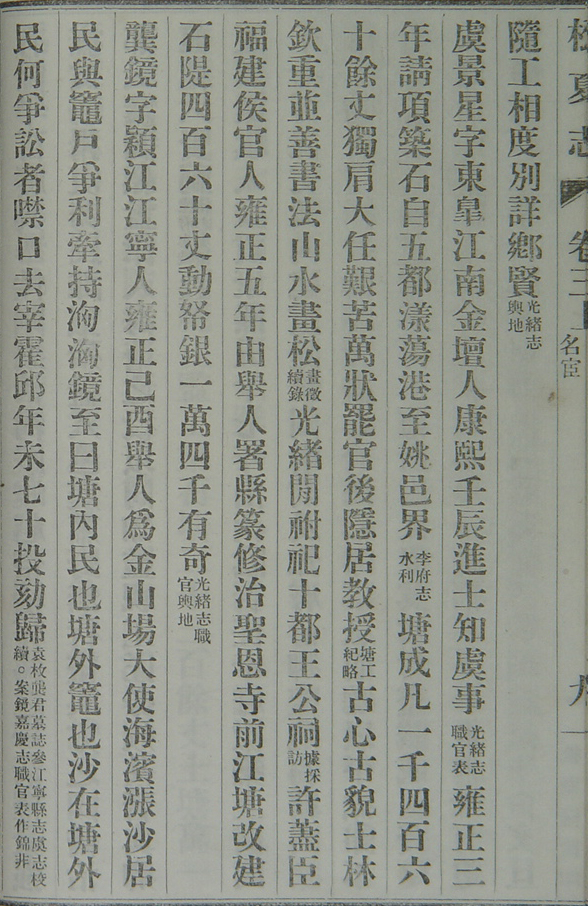 松夏志 卷三上 名宦 九
隨工相度別詳鄉賢光緒志輿地
虞景星字東臯江南金壇人康熙壬辰進士知虞事光緒志職官表雍正三
年請項築石自五都漾蕩港至姚邑界李府志水利塘成凡一千四百六
十餘丈獨肩大任艱苦萬狀罷官後隱居教授塘工紀略古心古貌士林
欽重並善書法山水畫松畫徵續錄光緒閒祔祀十都王公祠據採訪許藎臣
福建侯官人雍正五年由舉人署縣篆修治聖恩寺前江塘改建
石隄四百六十丈動帑銀一萬四千有奇光緒志職官輿地
龔鏡字穎江江寧人雍正己酉舉人爲金山場大使海濱漲沙居
民與竈戶爭利牽持洶洶鏡至曰塘內民也塘外竈也沙在塘外
民何爭訟者噤口去宰霍邱年未七十投劾歸袁枚龔君墓誌參江寧縣志虞志校續○案鏡嘉慶志職官表作錦非